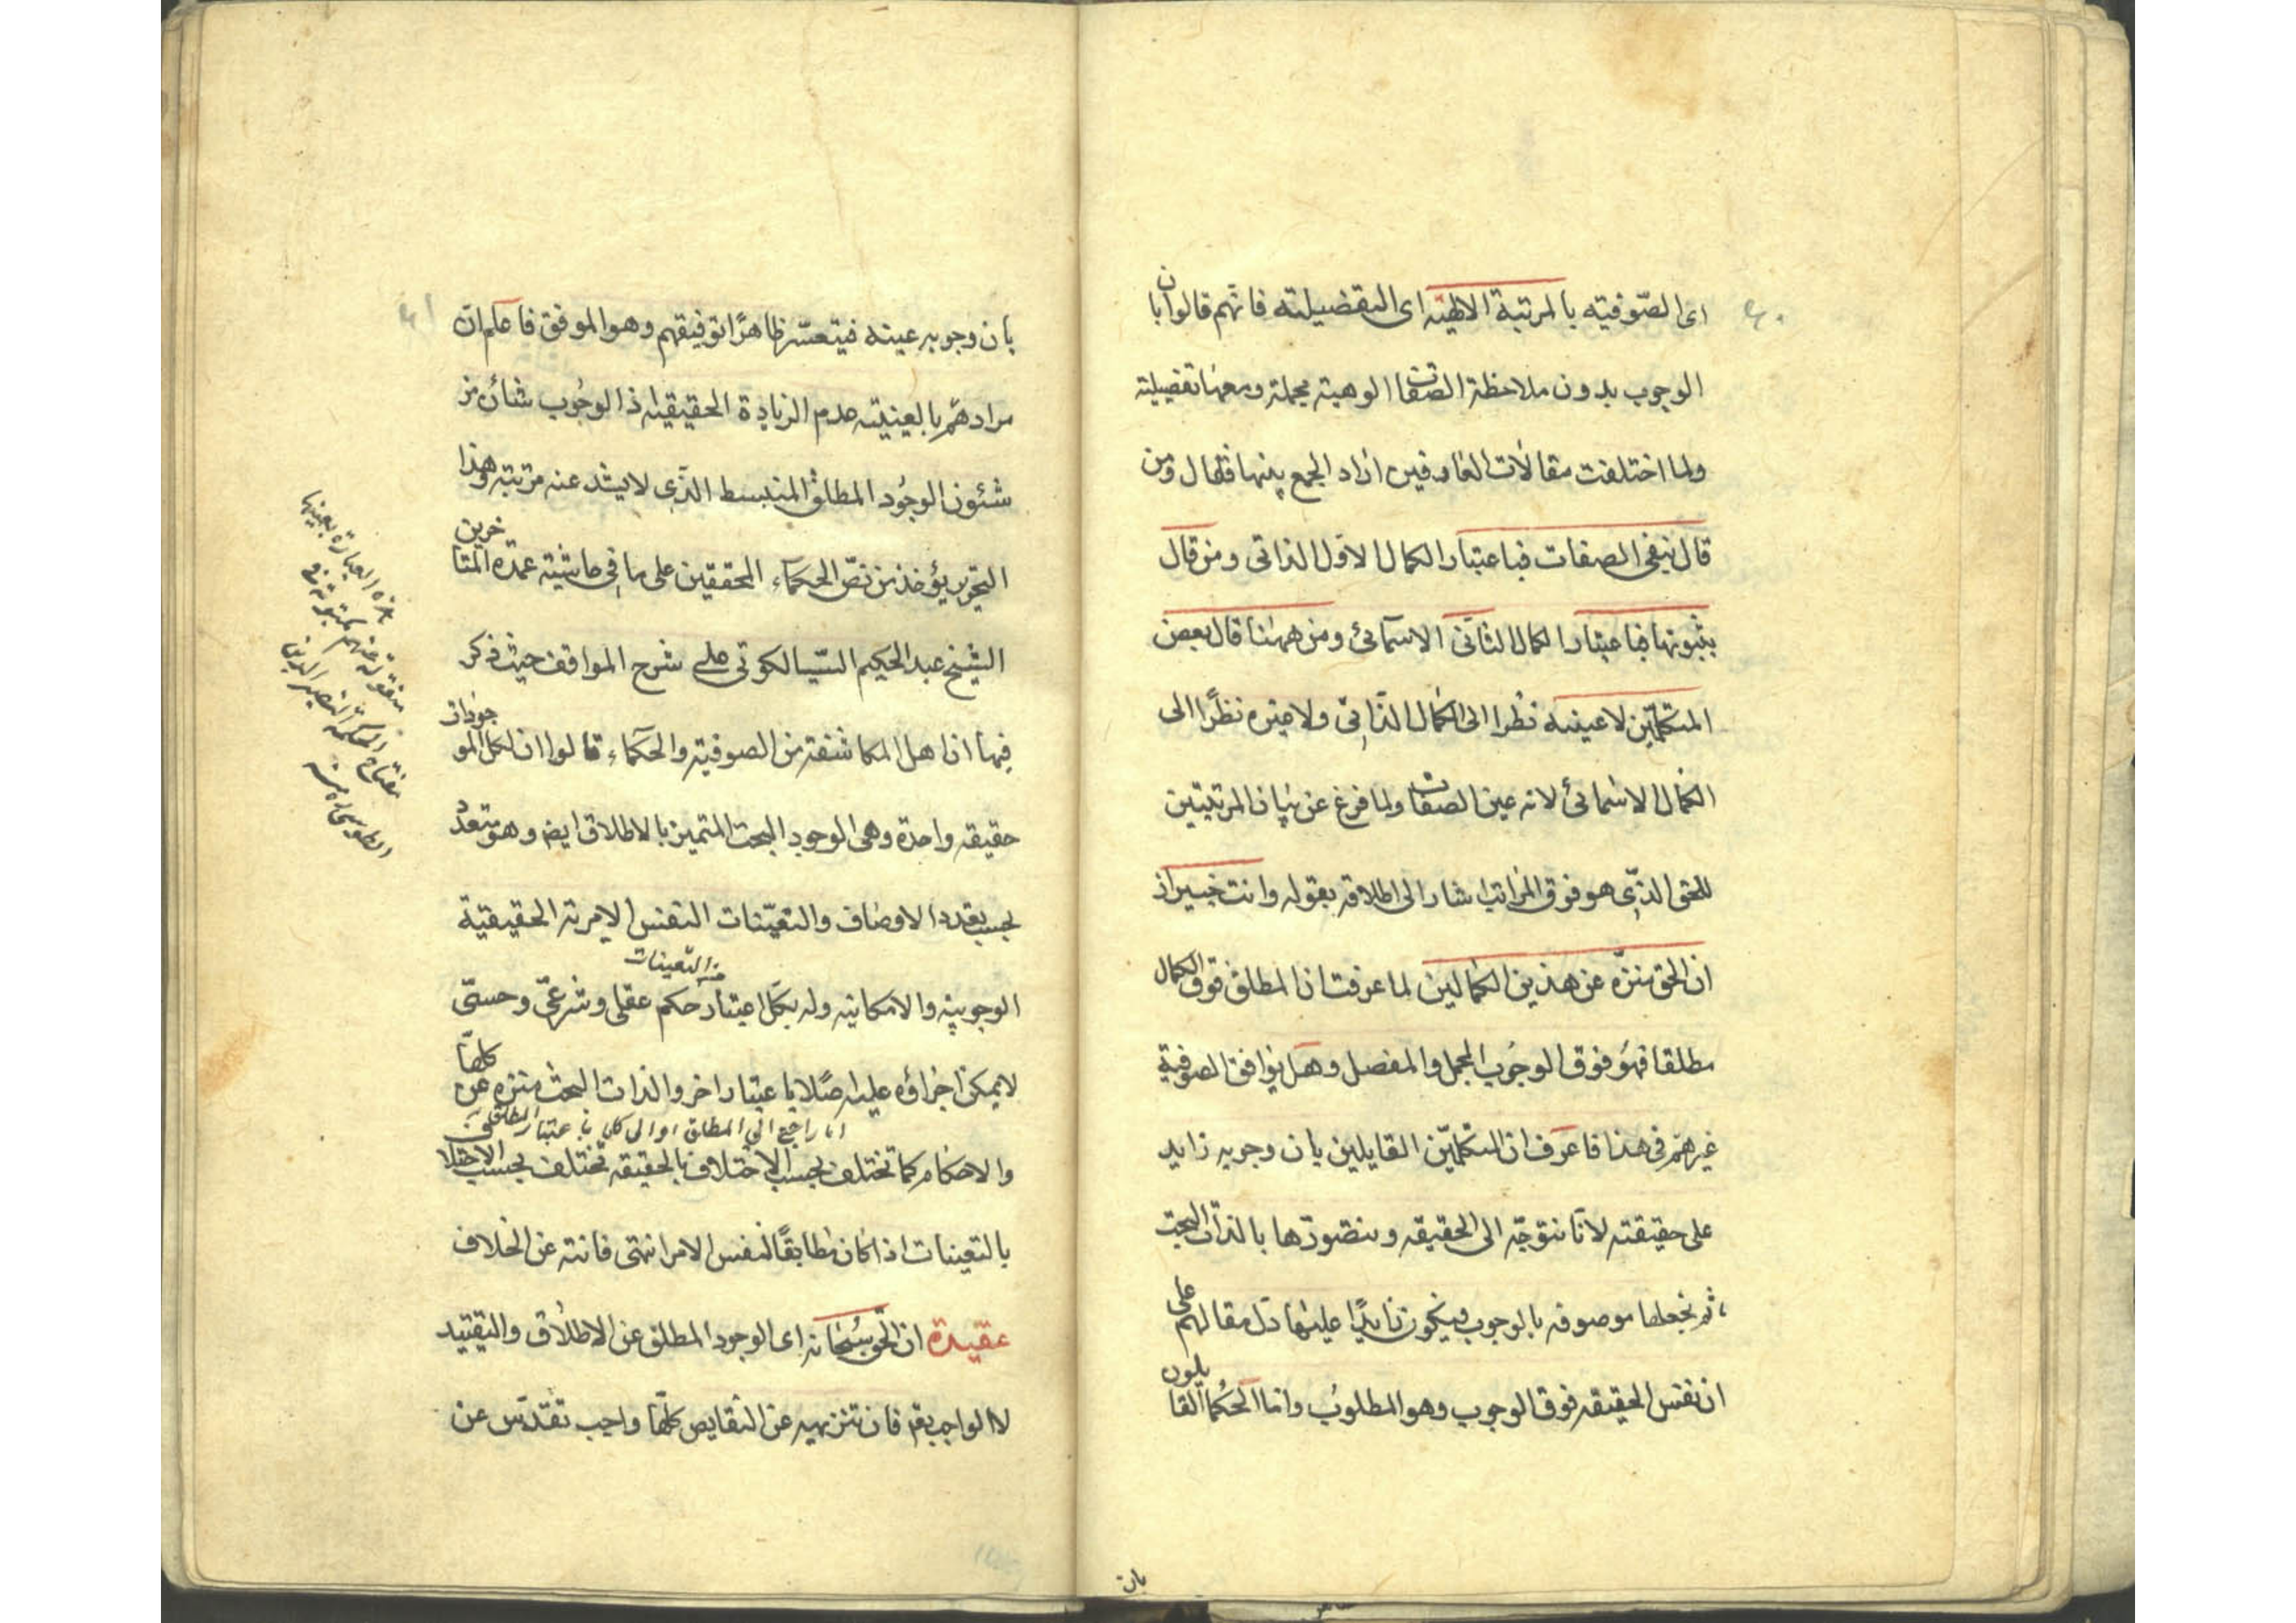 ٤٠
اى الصّوفيّه بالمرتبة الالهيّه اى التفضيليّه فانّهم قالوا بان
الوجوب بدون ملاحظة الصفات الوهية مجملة ومعها تفضيلية
ولما اختلفت مقالات العارفين اراد الجمع بينها فقال ومن
قال بنفى الصفات فباعتبار الكمال الاوّل الذاتى ومن قال
بثبوتها فباعتبار الكمال الثانى الاسمائى ومن ههنا قال بعض
المتكلمين لا عينه نظرا الى الكمال الذاتى ولا غيره نظرًا الى
الكمال الاسمائى لانه عين الصفات ولما فرغ عن بيان المرتبتين
للحق الذى هو فوق المراتب اشار الى اطلاقه بقوله وانت خبير اذ
ان الحق منزّه عن هذين الكمالين لما عرفت ان المطلق فوق الكمال
مطلقا فهو فوق الوجوب المجمل والمفصل وهل يوافق الصوفية
غيرهم فى هذا فاعرف ان المتكلمّين القايلين بان وجوبه زايد
على حقيقته لانّا نتوجّه الى الحقيقه ونتصورّها بالذات البحت
ثم نجعلها موصوفه بالوجوب فيكون زايدًا عليها دل مقالهم على
ان نفس الحقيقه فوق الوجوب وهو المطلوب وامّا الحكما القايلون
بان
٤١
بان وجوبه عينه فيتعسّر ظاهرًا توفيقهم وهو الموفق فاعلم انّ
مرادهم بالعينيّه عدم الزيادة الحقيقيه اذ الوجوب شأن من
شئون الوجود المطلق المنبسط الذى لا يشذ عنه مرتبة وهذا
التحرير يؤخذ من نصّ الحكمآء المحققين على ما فى حاشية عمدة المتاخرين
الشيخ عبد الحكيم السّيالكوتى على شرح المواقف حيث ذكر
فيها ان اهل المكاشفة من الصوفيه والحكمآء قالوا ان لكل الموجودات
حقيقه واحدة وهى الوجود البحت المتميز بالاطلاق ايض وهو متعدّد
بحسب تعدد الاوصاف والتعيّنات النفس الامرية الحقيقيّة
من التعينات
الوجوبيه والامكانيه وله بكل اعتبار حكم عقلى وشرعىّ وحسّى
لا يمكن اجراؤه عليه اصلا باعتبار اخر والذات البحت منزه عن كلها
اما راجع الى المطلق او الى كل باعتبار المطلق
والاحكام كما تختلف بحسب الاختلاف بالحقيقه تختلف بحسب الاختلاف
بالتعينات اذا كان مطابقًا لنفس الامر انتهى فانته عن الخلاف
عقيدة ان الحق سبحانه اى الوجود المطلق عن الاطلاق والتقييد
لا الواجب يقم فان تنزيهه عن النقايص كلها واجب تقدّس عن
هذه العبارة بعينها
منقولة عنهم
مفتاح الحكمة لنصير الدين
الطوسى منه